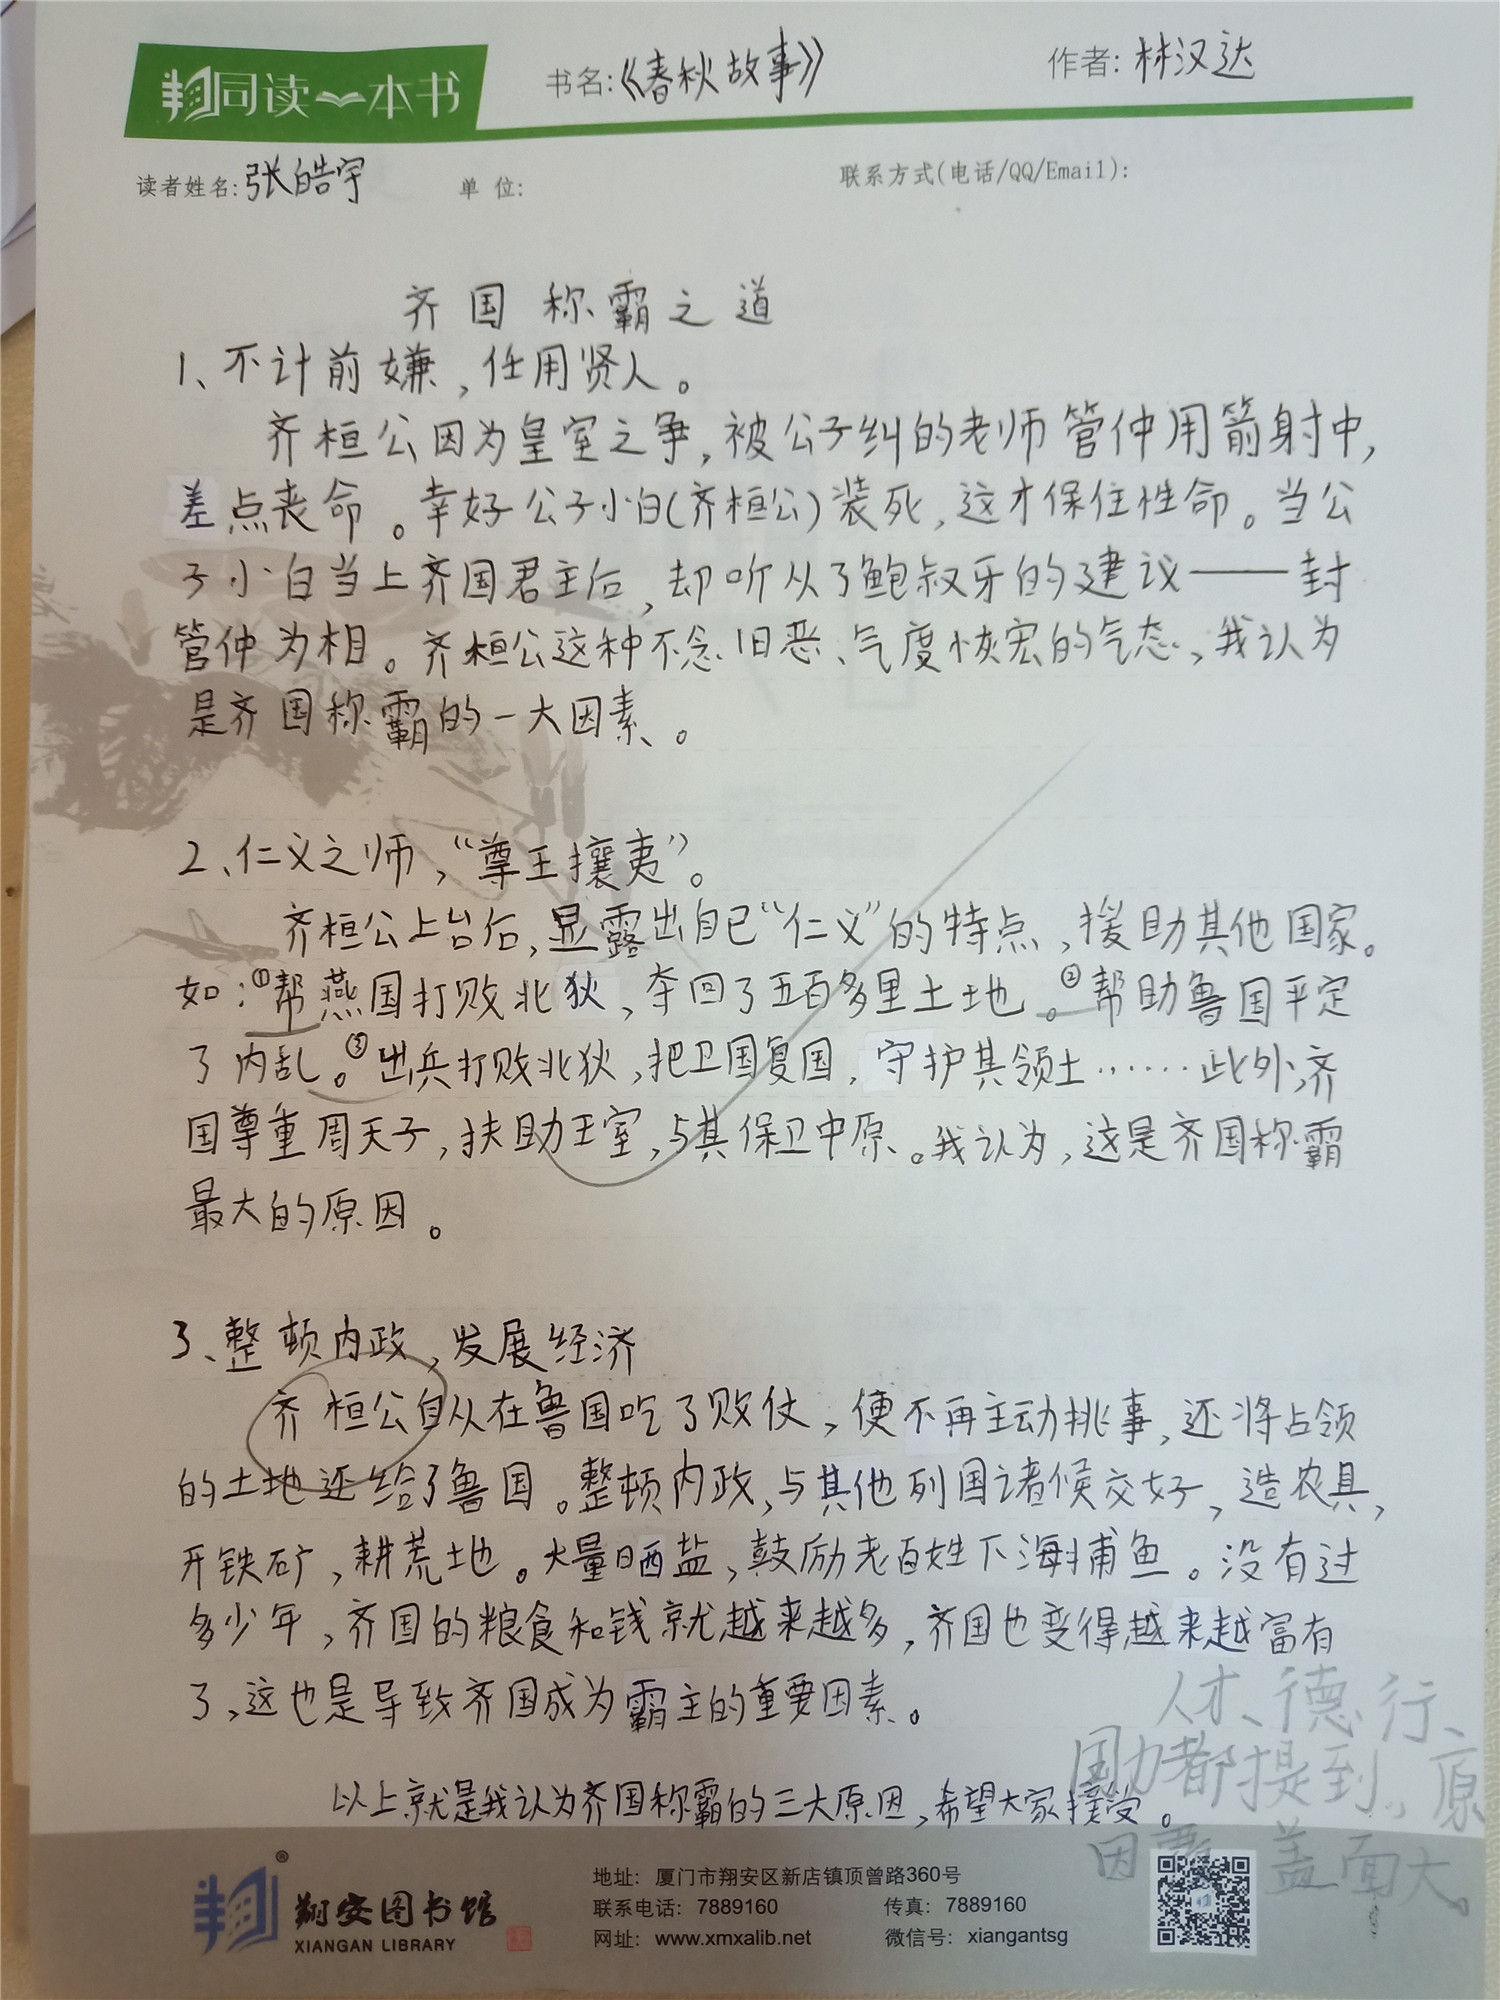 翔同读一本书
书名:《春秋故事》
作者:林汉达
读者姓名:张皓宇
单 位:
联系方式(电话/QQ/Email):
齐国称霸之道
1、不计前嫌,任用贤人。
齐桓公因为皇室之争,被公子纠的老师管仲用箭射中,
差点丧命。幸好公子小白(齐桓公)装死,这才保住性命。当公
子小白当上齐国君主后,却听从了鲍叔牙的建议——封
管仲为相。齐桓公这种不念旧恶、气度恢宏的气态、我认为
是齐国称霸的一大因素。
2、仁义之师,“尊王攘夷”。
齐桓公上台后,显露出自己“仁义”的特点,援助其他国家。
如:①帮燕国打败北狄,夺回了五百多里土地。②帮助鲁国平定
了内乱。③出兵打败北狄,把卫国复国,守护其领土……此外,齐
国尊重周天子,扶助王室,与其保卫中原。我认为,这是齐国称霸
最大的原因。
3、整顿内政,发展经济
齐桓公自从在鲁国吃了败仗,便不再主动挑事,还将占领
的土地还给了鲁国。整顿内政,与其他列国诸候交好,造农具,
开铁矿,耕荒地。大量晒盐,鼓励老百姓下海捕鱼。没有过
多少年,齐国的粮食和钱就越来越多,齐国也变得越来越富有
了,这也是导致齐国成为霸主的重要因素。
以上就是我认为齐国称霸的三大原因,希望大家接受。
人才、德行、
国力都提到,原
因覆盖面大。
翔安图书馆
XIANGAN LIBRARY
地址:厦门市翔安区新店镇顶曾路360号
联系电话:7889160
传真:7889160
网址:www.xmxalib.net
微信号:xiangantsg